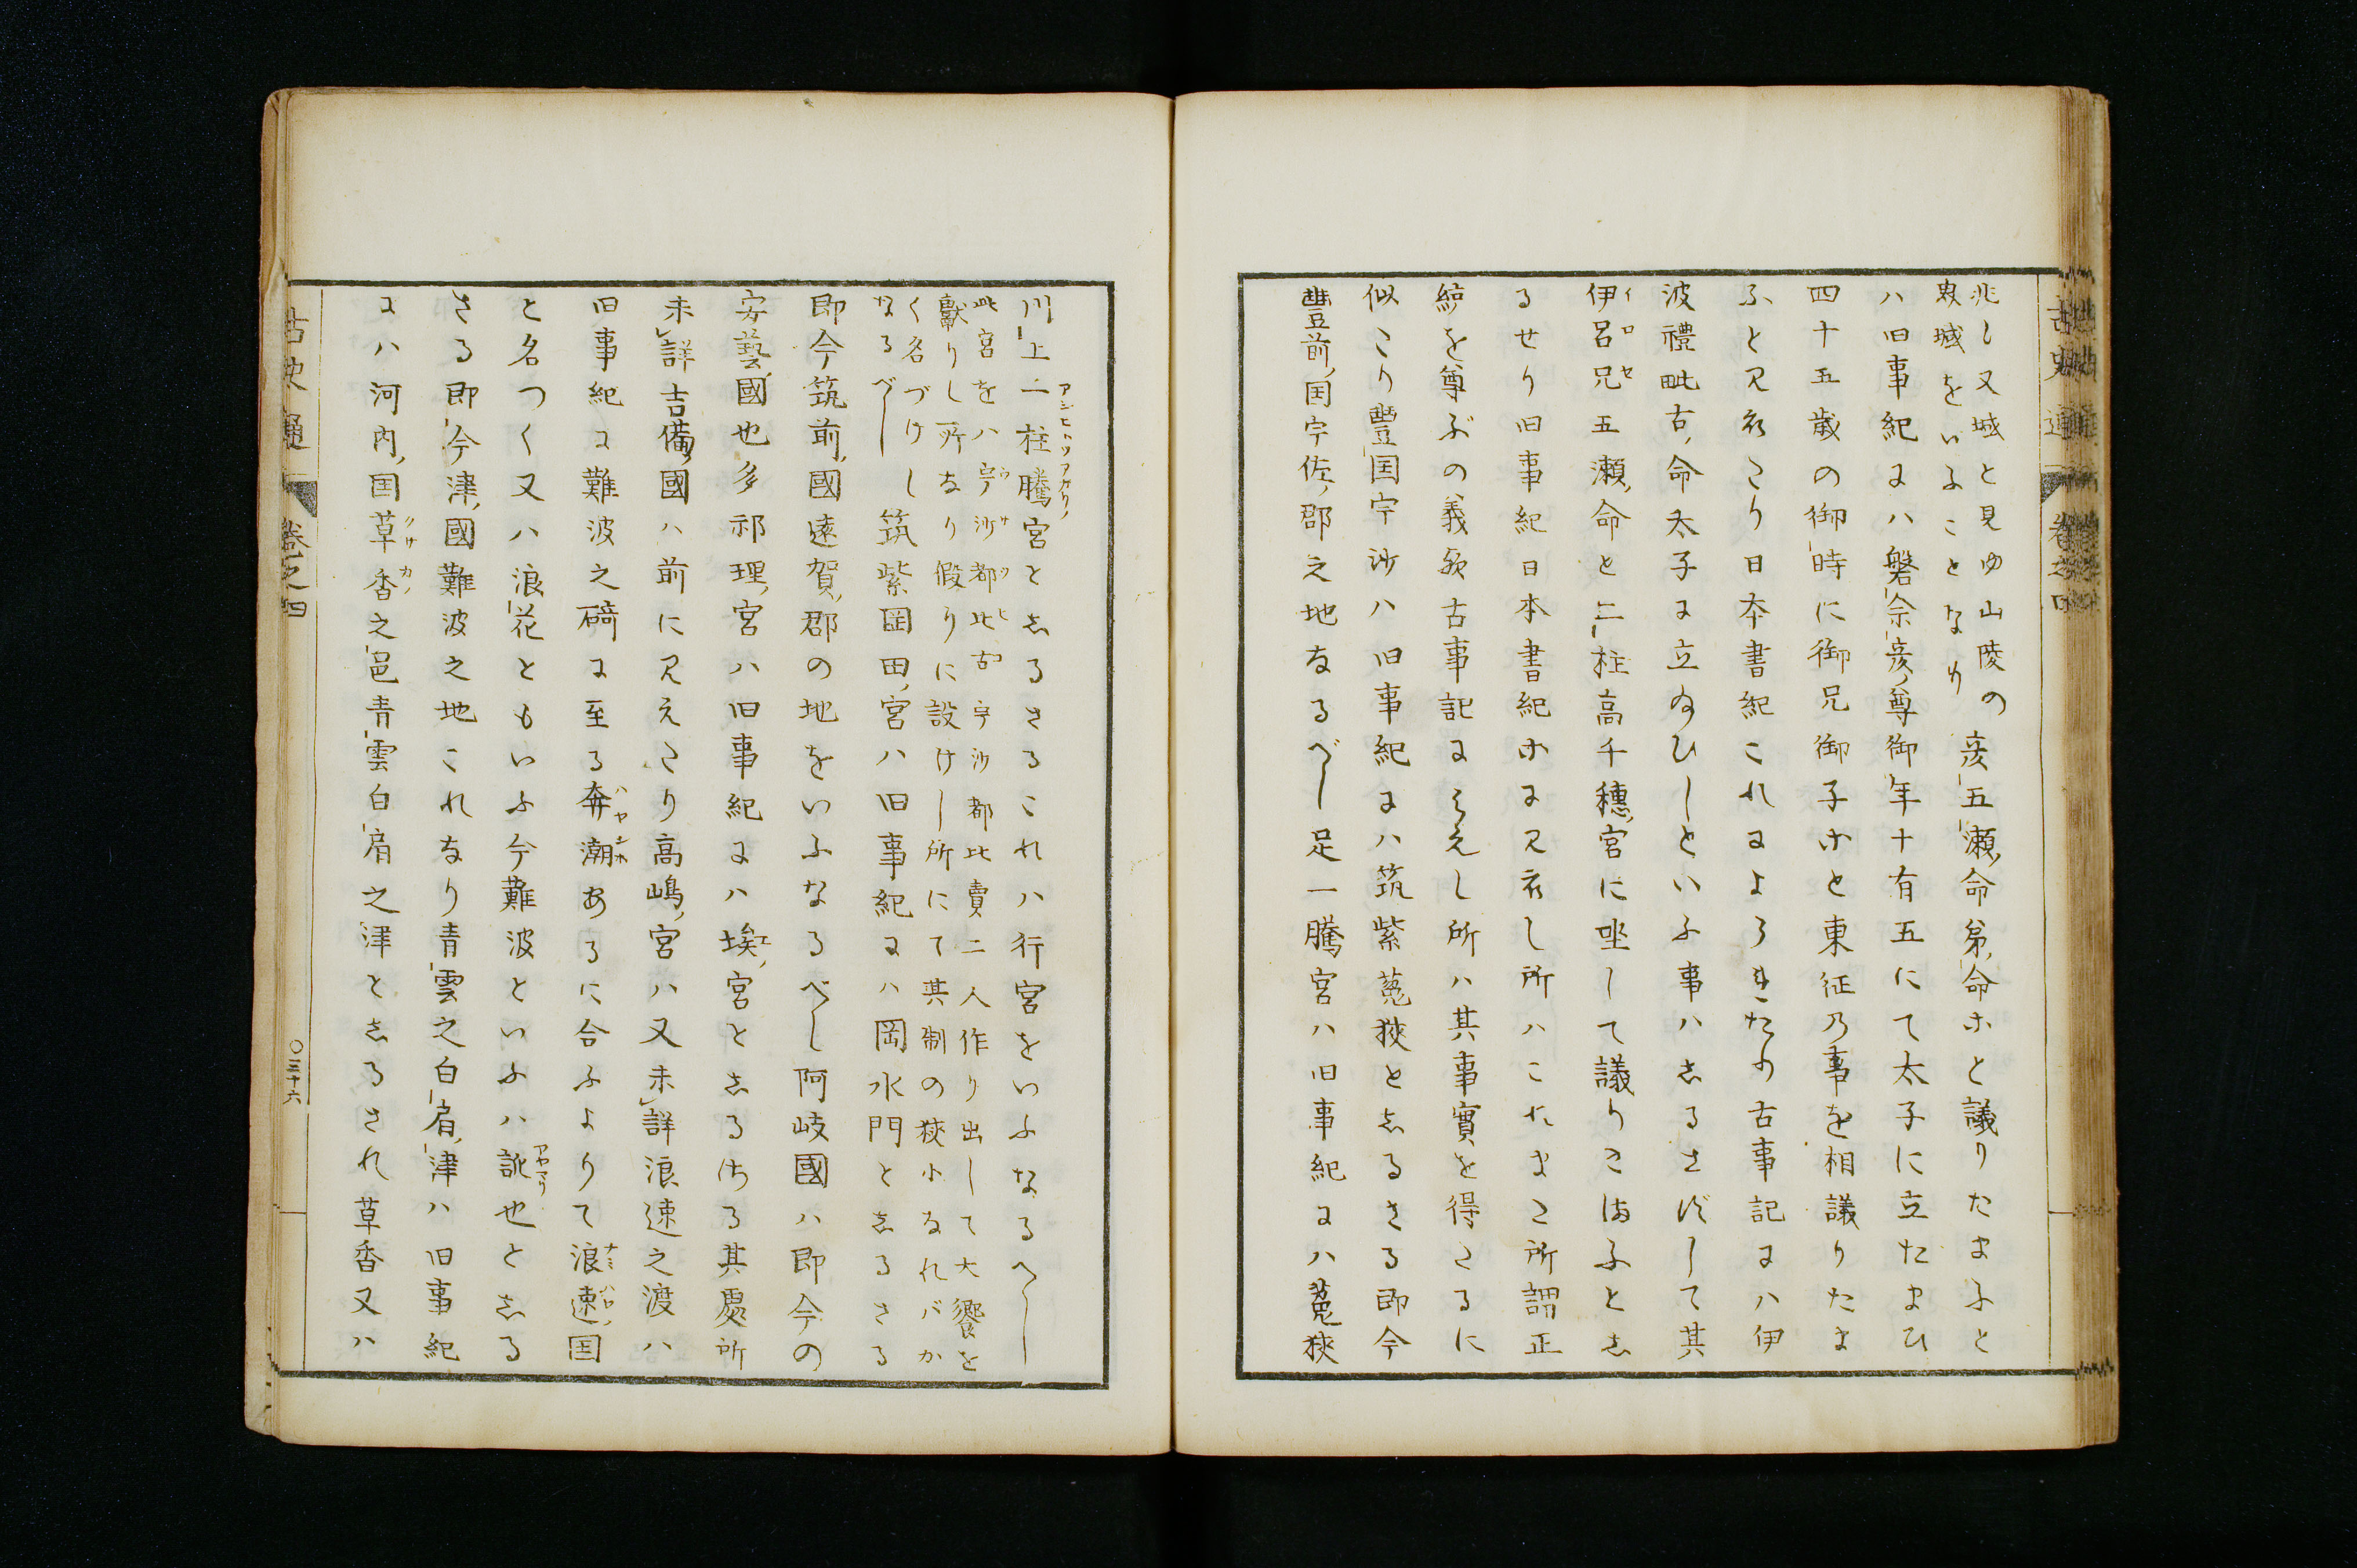 兆し又城と見ゆ山陵の
域をいふことなり
彦五瀬命弟命ホと議りたまふと
ハ旧事紀にハ磐余彦尊御年十有五にて太子に立たまひ
四十五歳の御時に御兄御子ホと東征乃事を相議りたま
ふと見えたり日本書紀これによろきたり古事記にハ伊
波禮毗古命太子に立給ひしといふ事ハしるさずして其
伊呂兄五瀬命と二柱高千穂宮に坐して議りたまふとし
るせり旧事紀日本書紀ホに見えし所ハこたまこ所謂正
統を尊ぶの義歟古事記にみえし所ハ其事實を得たるに
似たり豐国宇沙ハ旧事紀にハ筑紫菟狭としるさる即今
豐前国宇佐郡之地なるべし足一騰宮ハ旧事紀にハ菟狭
川上一柱騰宮としるさるこれハ行宮をいふなるへし
アシヒトツアガリノ
此宮をハ宇沙都比古宇沙都比賣二人作り出して大饗を
ウサツヒ
獻りし所なり假りに設けし所にて其制の狭小なれバか
く名づけし
なるべし
筑紫岡田宮ハ旧事紀にハ岡水門としるさる
即今筑前國遠賀郡の地をいふなるべし阿岐國ハ即今の
安藝國也多祁理宮ハ旧事紀にハ埃宮としるせる其處所
エノ
未詳吉備國ハ前に見えたり高嶋宮ハ又未詳浪速之渡ハ
旧事紀に難波之碕に至る奔潮あるに合ふよりて浪速国
ハヤシホ
ナミハヤノ
と名つく又ハ浪花ともいふ今難波といふハ訛也としる
アヤマリ
さる即今津國難波之地これなり青雲之白肩津ハ旧事紀
にハ河内国草香之邑青雲白肩之津としるされ草香又ハ
クサカノ
古史通
卷之四
〇三十六